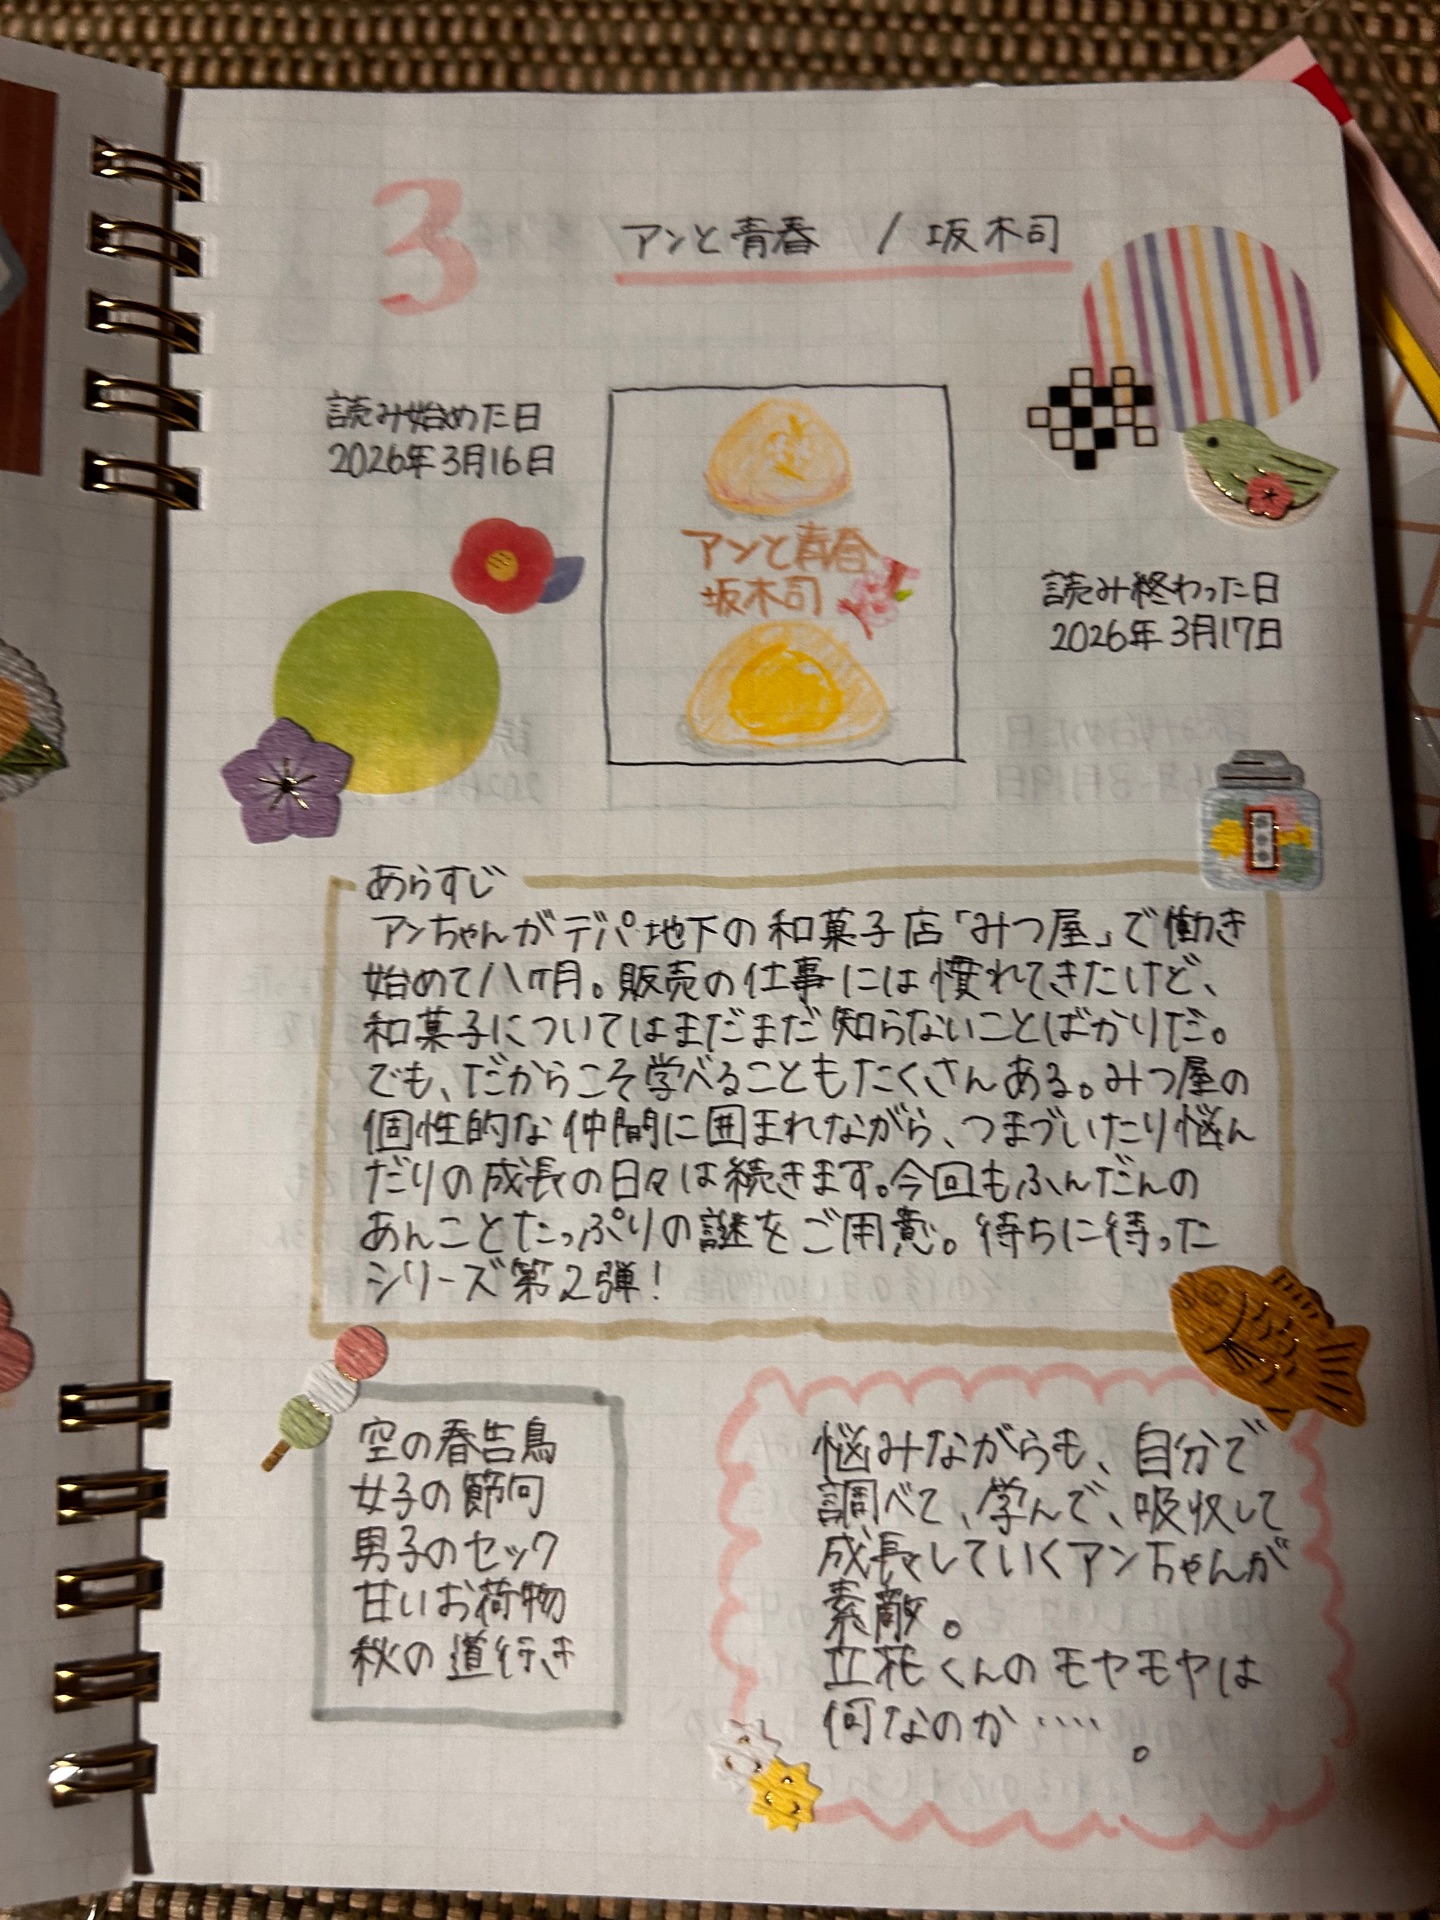 3
アンと青春 / 坂木司
読み始めた日
2026年3月16日
アンと青春
坂木司
読み終わった日
2026年3月17日
あらすじ
アンちゃんがデパ地下の和菓子店「みつ屋」で働き
始めて八ヶ月。販売の仕事には慣れてきたけど、
和菓子についてはまだまだ知らないことばかりだ。
でも、だからこそ学べることもたくさんある。みつ屋の
個性的な仲間に囲まれながら、つまづいたり悩ん
だりの成長の日々は続きます。今回もふんだんの
あんことたっぷりの謎をご用意。待ちに待った
シリーズ第2弾!
空の春告鳥
女子の節句
男子のセック
甘いお荷物
秋の道行き
悩みながらも、自分で
調べて、学んで、吸収して
成長していくアンちゃんが
素敵。
立花くんのモヤモヤは
何なのか‥‥。